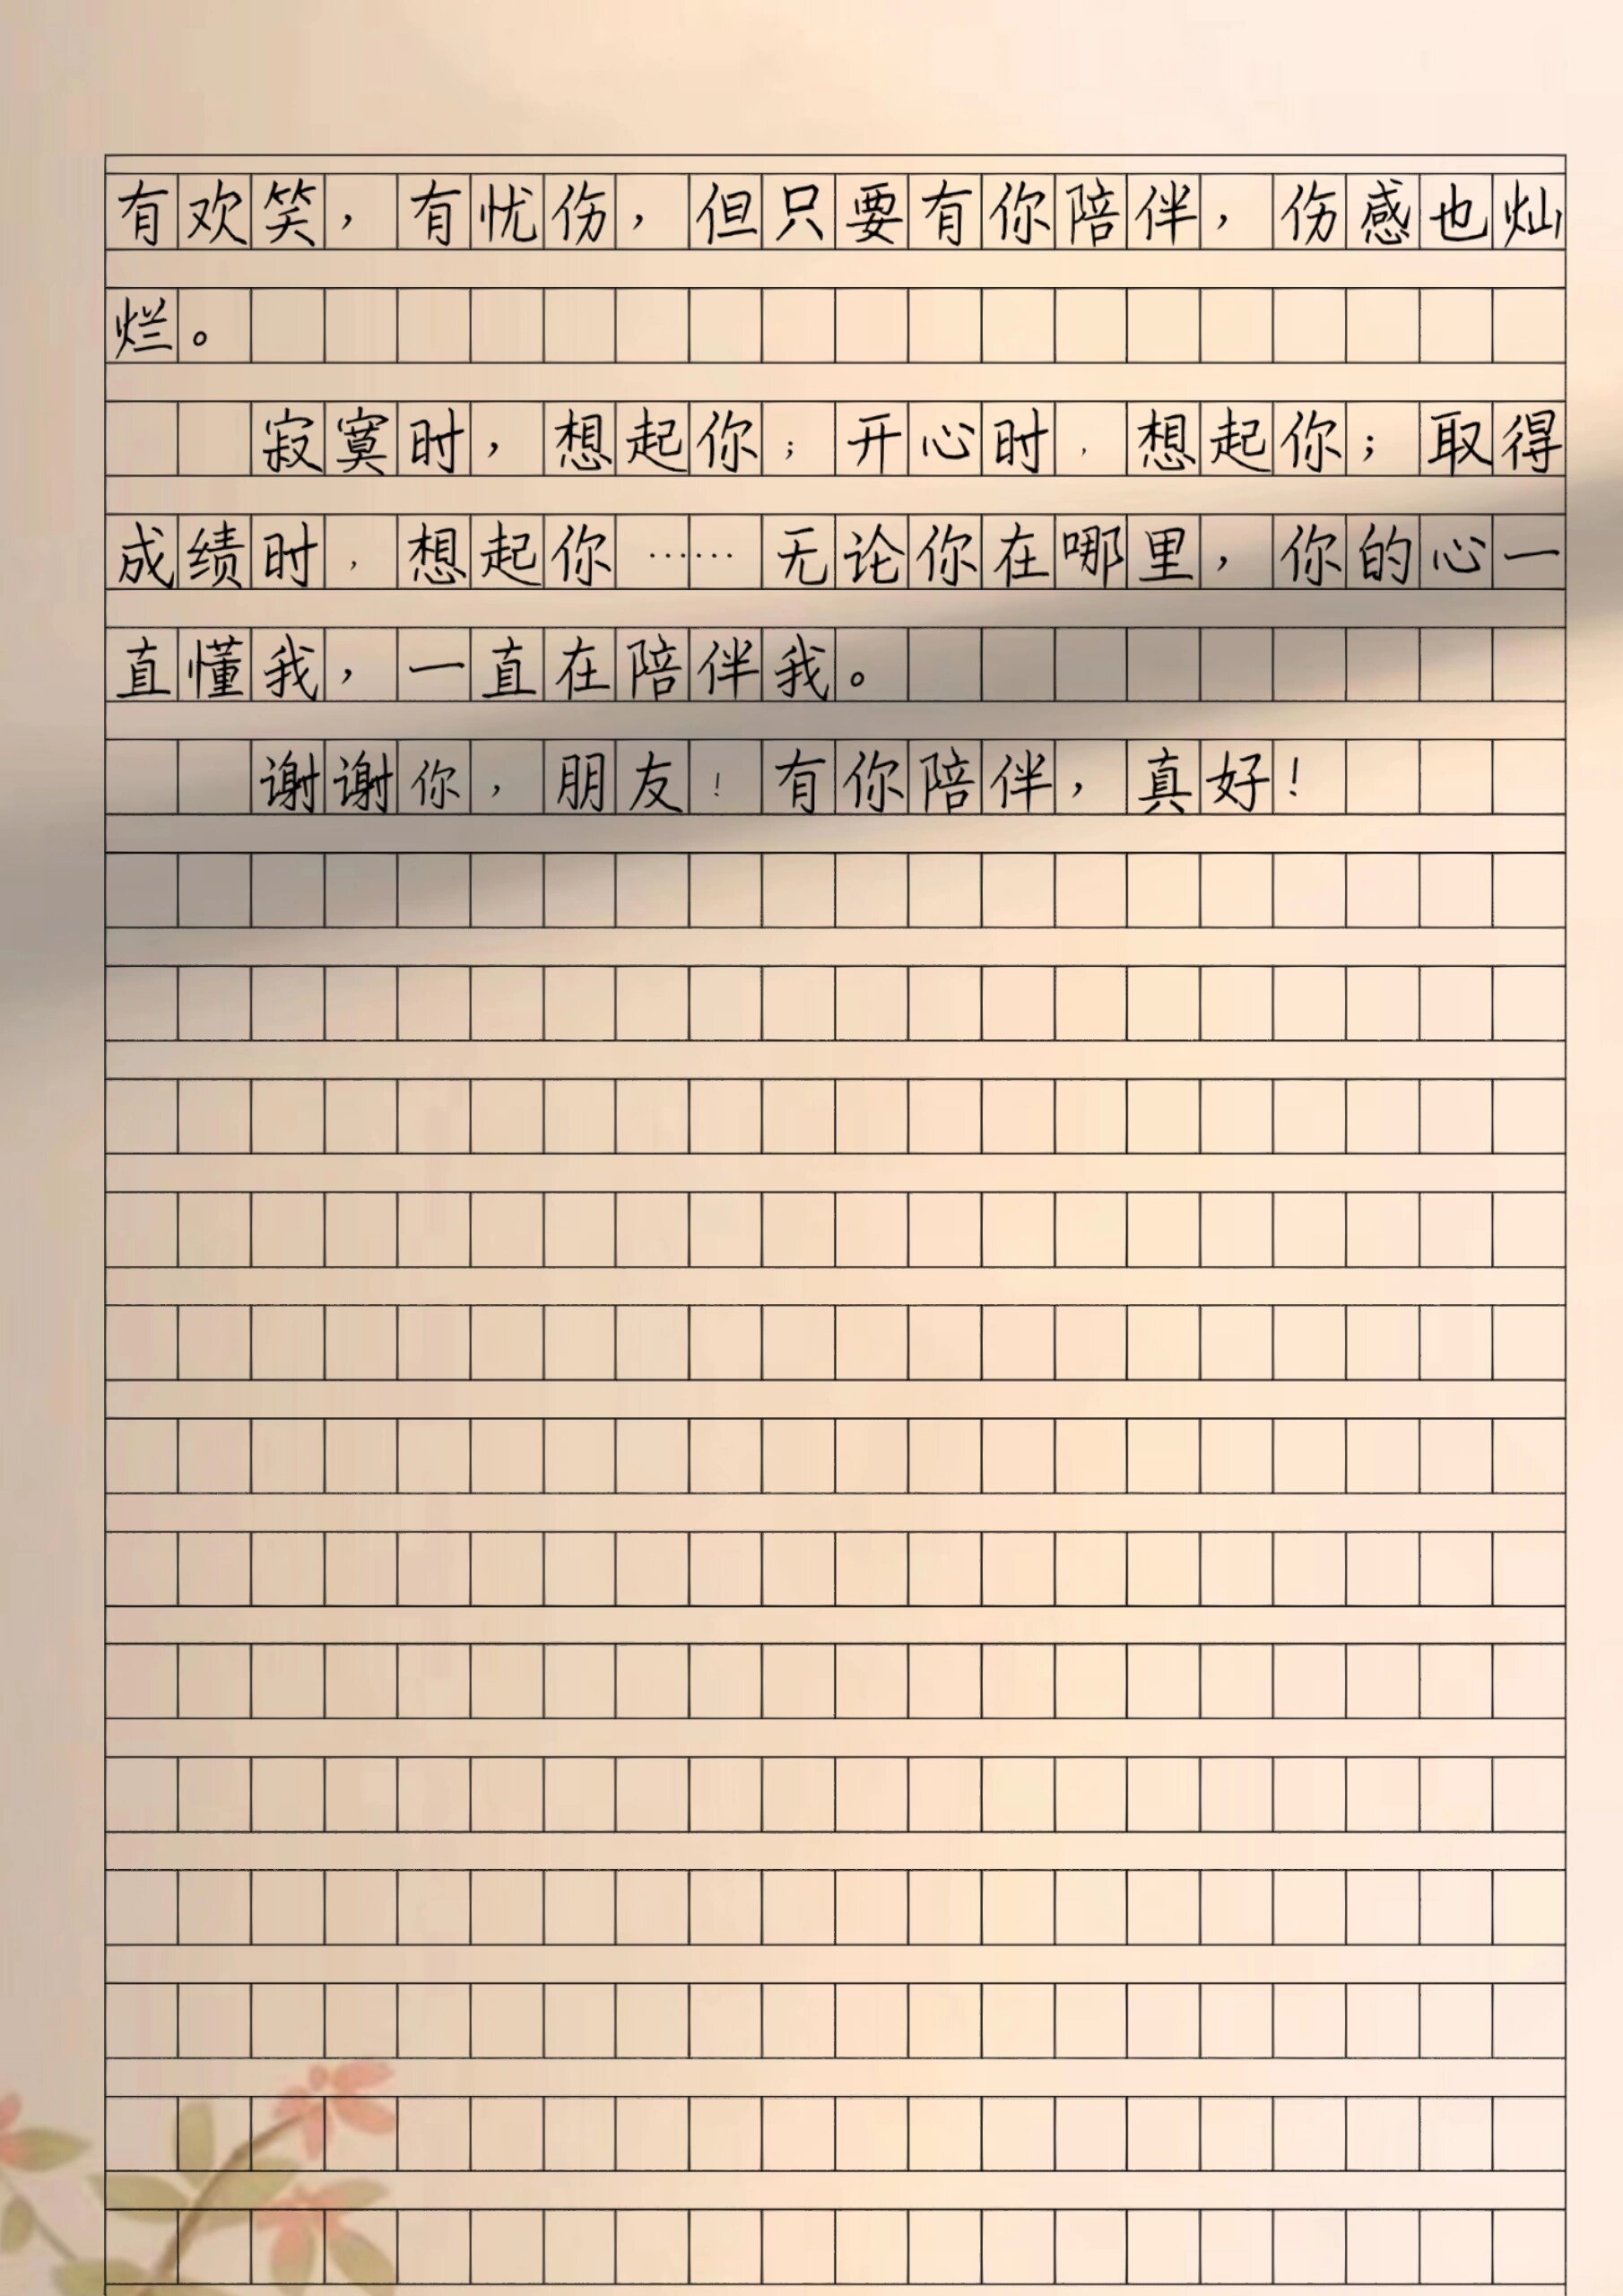 有欢笑，有忧伤，但只要有你陪伴，伤感也灿
烂。
寂寞时，想起你；开心时，想起你；取得
成绩时，想起你……无论你在哪里，你的心一
直懂我，一直在陪伴我。
谢谢你，朋友！有你陪伴，真好！